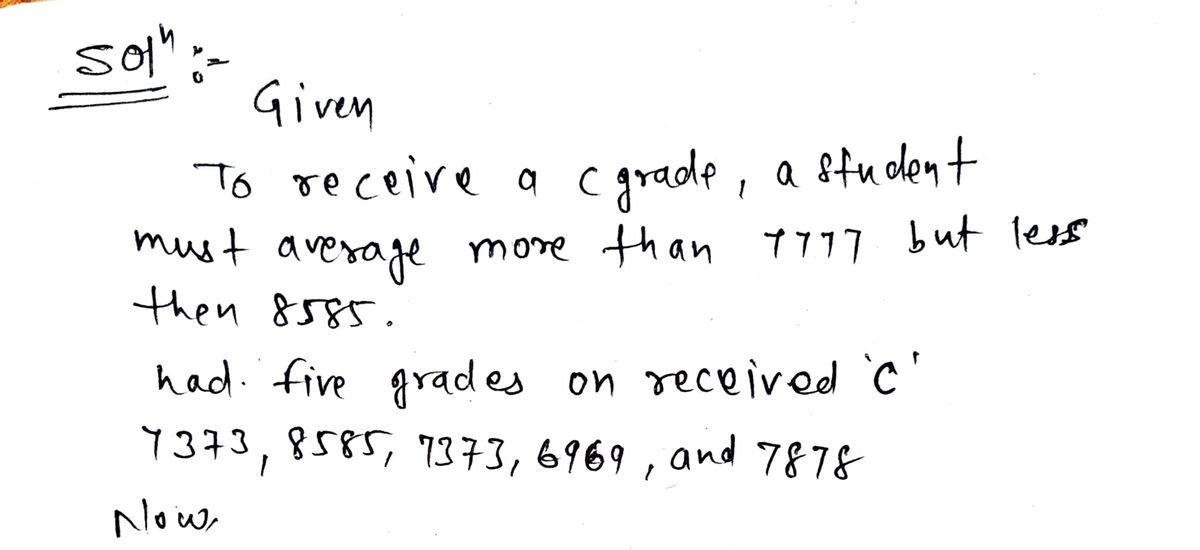 Solⁿ :-
Given
To receive a c grade, a student
must average more than 7777 but less
then 8585.
had. five grades on received 'c'
7373, 8585, 7373, 6969, and 7878
Now,